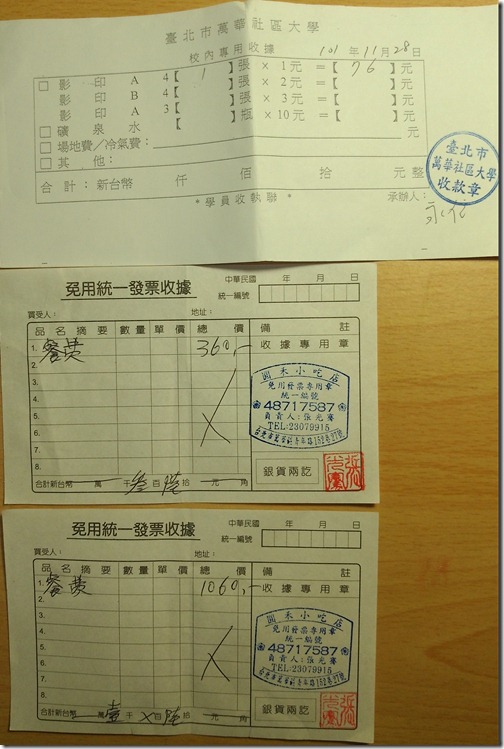 臺北市萬華社區大學
校內專用收據 101年11月28日
□ 影印 A4【 1 】張 × 1 元 =【 76 】元
影印 B4【 】張 × 2 元 =【 】元
影印 A3【 】張 × 3 元 =【 】元
□ 礦泉水【 】瓶 × 10 元 =【 】元
□ 場地費／冷氣費： 元
□ 其他：
合計：新台幣 仟 佰 拾 元整
＊學員收執聯＊ 承辦人：
臺北市
萬華社區大學
收款章
免用統一發票收據 中華民國 年 月 日
統一編號
買受人： 地址：
品名摘要 數量 單價 總價 備註
1. 餐費 360,- 收據專用章
2.
3.
4.
5.
6.
7.
8.
合計新台幣 萬 千 叁 百 陸 拾 元 角
圓禾小吃店
免用發票專用章
統一編號
48717587
負責人：張光騫
TEL:23079915
台北市萬華區青年路152巷27號
銀貨兩訖
免用統一發票收據 中華民國 年 月 日
統一編號
買受人： 地址：
品名摘要 數量 單價 總價 備註
1. 餐費 1060,- 收據專用章
2.
3.
4.
5.
6.
7.
8.
合計新台幣 萬 壹 千 百 陸 拾 元 角
圓禾小吃店
免用發票專用章
統一編號
48717587
負責人：張光騫
TEL:23079915
台北市萬華區青年路152巷27號
銀貨兩訖